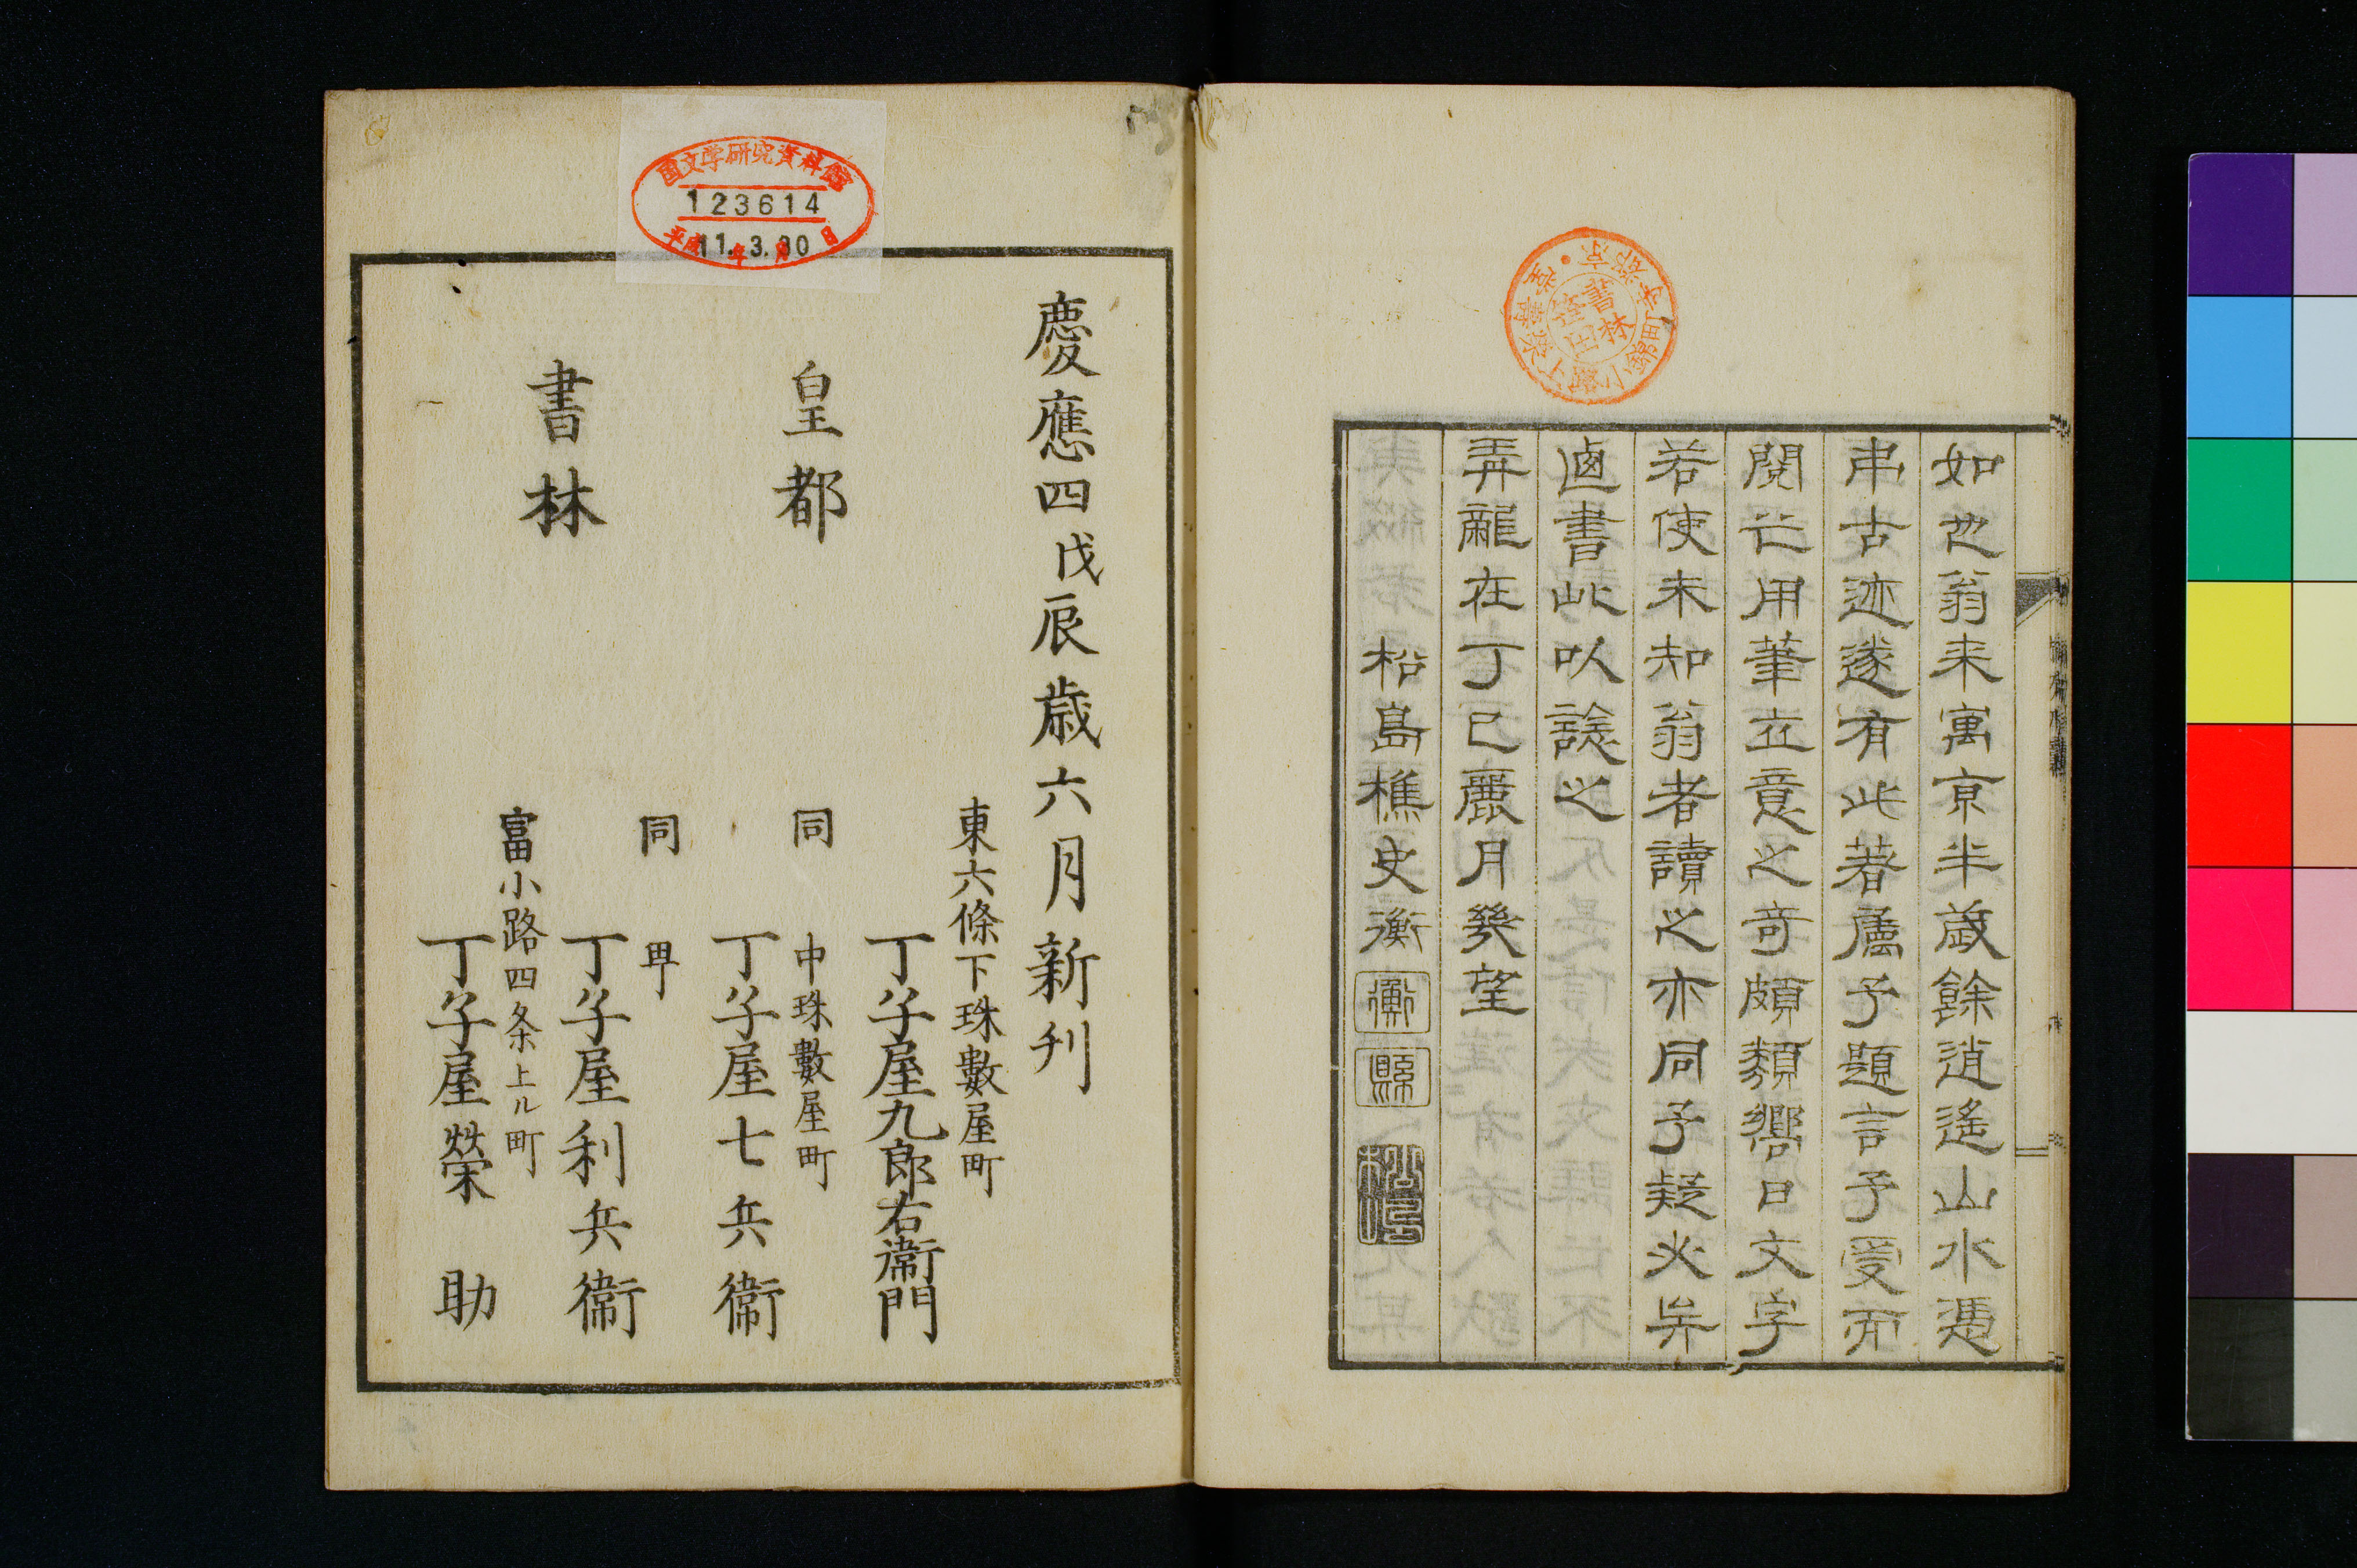 如也翁来寓京半歳餘逍遙山水憑
弔古迹遂有此著属予題言予受而
閲之用筆立意之奇頗類嚮日文字
若使未知翁者讀之亦同予疑必矣
書此以諗之
龍在丁巳麗月幾望
松島樵史衡
衡
縣
慶應四戊辰歳六月新刊
皇都
書林
東六條下珠數屋町
丁子屋九郎右衞門
同
中珠數屋町
丁子屋七兵衞
同
丁子屋利兵衞
富小路四条上ル町
丁子屋榮助
国文学研究資料館
123614
平成11年3月30日
書林